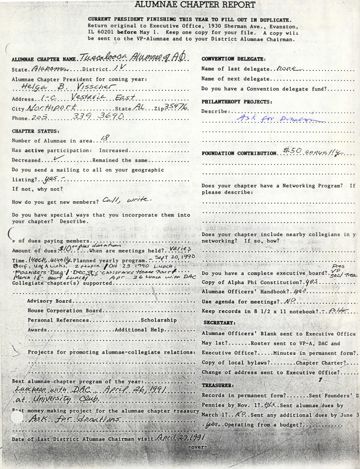 ALUMNAE CHAPTER REPORT
CURRENT PRESIDENT FINISHING THIS YEAR TO FILL OUT IN DUPLICATE.
Return original to Executive Office, 1930 Sherman Ave., Evanston,
IL 60201 before May 1. Keep one copy for your file. A copy will
be sent to the VP-Alumnae and to your District Alumnae Chairman.
ALUMNAE CHAPTER NAME Tuscaloosa Alumnae of
State Alabama District IV
Alumnae Chapter President for coming year:
Helga B. Visscher
Address 1-C Vestavia East
City Northport State AL Zip 35476
Phone 205 339 3690
CHAPTER STATUS:
Number of Alumnae in area 18
Has active participation: Increased
Decreased ✓ Remained the same
Do you send a mailing to all on your geographic
listing? yes
If not, why not?
How do you get new members? Call, write
Do you have special ways that you incorporate them into
your chapter? Describe.
# of dues paying members
Amount of dues $10 When are meetings held? Varies
Time Noon, usually Planned yearly program - Sept 20, 1990
Collegiate chapter(s) supported
Advisory Board
House Corporation Board
Personal References Scholarship
Awards Additional Help
Projects for promoting alumnae-collegiate relations:
Best alumnae chapter program of the year:
Luncheon with DAC - April 26, 1991
at University Club
Best money making project for the alumnae chapter treasury
Ask for donations
Date of last District Alumnae Chairman visit April 27, 1991
-over-
CONVENTION DELEGATE:
Name of last delegate none
Name of next delegate
Do you have a Convention delegate fund?
PHILANTHROPY PROJECTS:
Describe
Ask for
FOUNDATION CONTRIBUTION $50 annually
Does your chapter have a Networking Program? If
please describe:
Does your chapter include nearby collegians in y
networking? If so, how?
Do you have a complete executive board?
Copy of Alpha Phi Constitution? yes
Alumnae Officers' Handbook? yes
Use agenda for meetings? NO
Keep records in 8 1/2 x 11 notebook?
SECRETARY:
Alumnae Officers' Blank sent to Executive Office
May 1st? Roster sent to VP-A, DAC and
Executive Office? Minutes in permanent form?
Copy of local bylaws? Chapter Charter?
Change of address sent to Executive Office?
TREASURER:
Records in permanent form? Sent Founders' D
Pennies by Nov. 1? yes Sent alumnae dues by
March 1? Sent any additional dues by June 3
yes Operating from a budget?